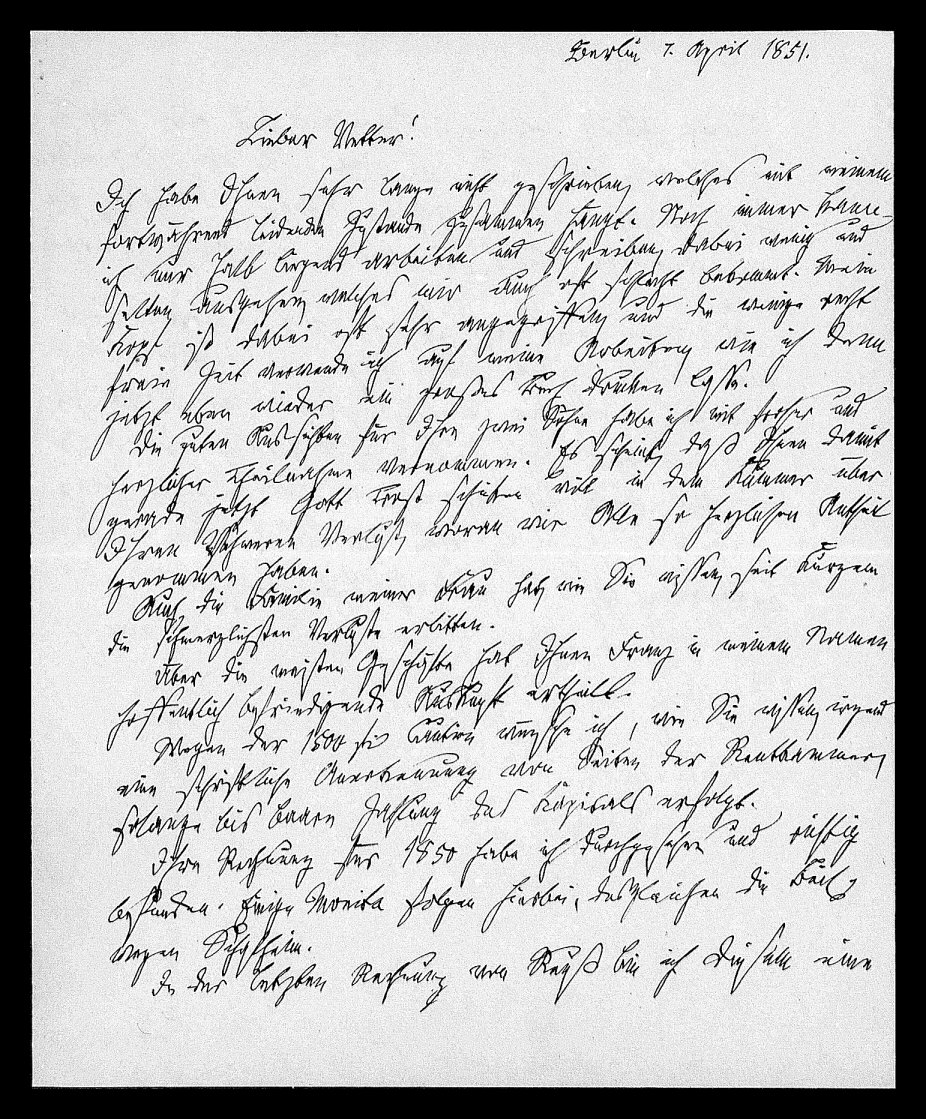 Berlin 7. April 1851.
Lieber Vetter!
Ich habe Ihnen sehr lange nicht geschrieben, welches mit meinem
fortwährend leidenden Zustande zusammen hängt. Noch immer kann
ich nur halb liegend arbeiten und schreiben, dabei wenig und
selten ausgehen, welches mir auch oft schlecht bekommt. Mein
Kopf ist dabei oft sehr angegriffen, und die wenige recht
freie Zeit verwende ich auf meine Arbeiten, wie ich denn
jetzt eben wieder ein großes Buch drucken lasse.
Die guten Aussichten für Ihre zwei Söhne habe ich mit froher und
herzlicher Theilnahme vernommen. Es scheint, daß Ihnen damit
gerade jetzt Gott Trost schicken will in dem Kummer über
Ihren schweren Verlust, woran wir Alle so herzlichen Antheil
genommen haben.
Auch die Familie meiner Frau hat, wie Sie wissen, seit Kurzem
die schmerzlichsten Verluste erlitten.
Über die meisten Geschäfte hat Ihnen Franz in meinem Namen
hoffentlich befriedigende Auskunft ertheilt.
Wegen der 1500 Caution wünsche ich, wie Sie wissen, irgend
eine schriftliche Anerkennung von Seiten der Rentkammer,
solange bis baare Zahlung des Kapitals erfolgt.
Ihre Rechnung für 1850 habe ich durchgesehen und richtig
befunden. Einige Monita folgen hierbei, desgleichen die
wegen
In der letzten Rechnung von bin ich diesem eine